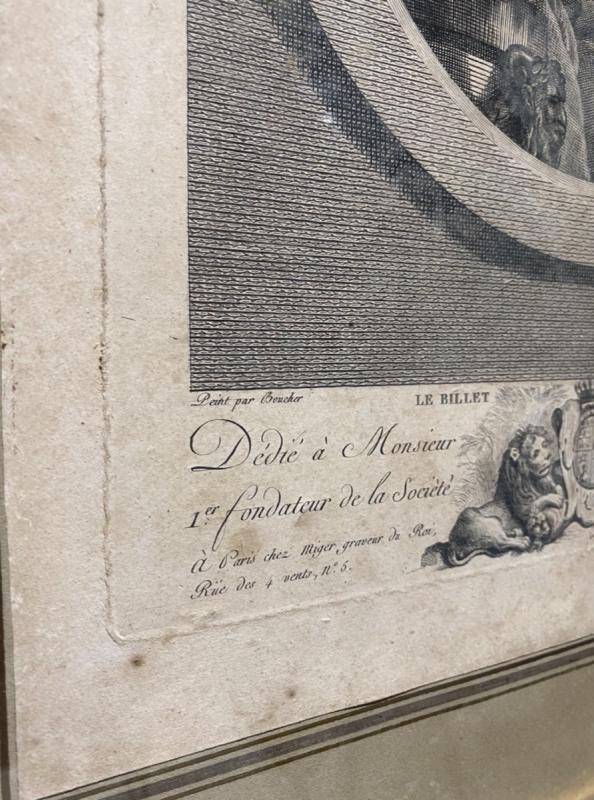 Peint par Boucher
LE BILLET
Dédié à Monsieur
1.er fondateur de la Société
À Paris chez Miger graveur du Roi,
Rüe des 4 vents, N.º 5.